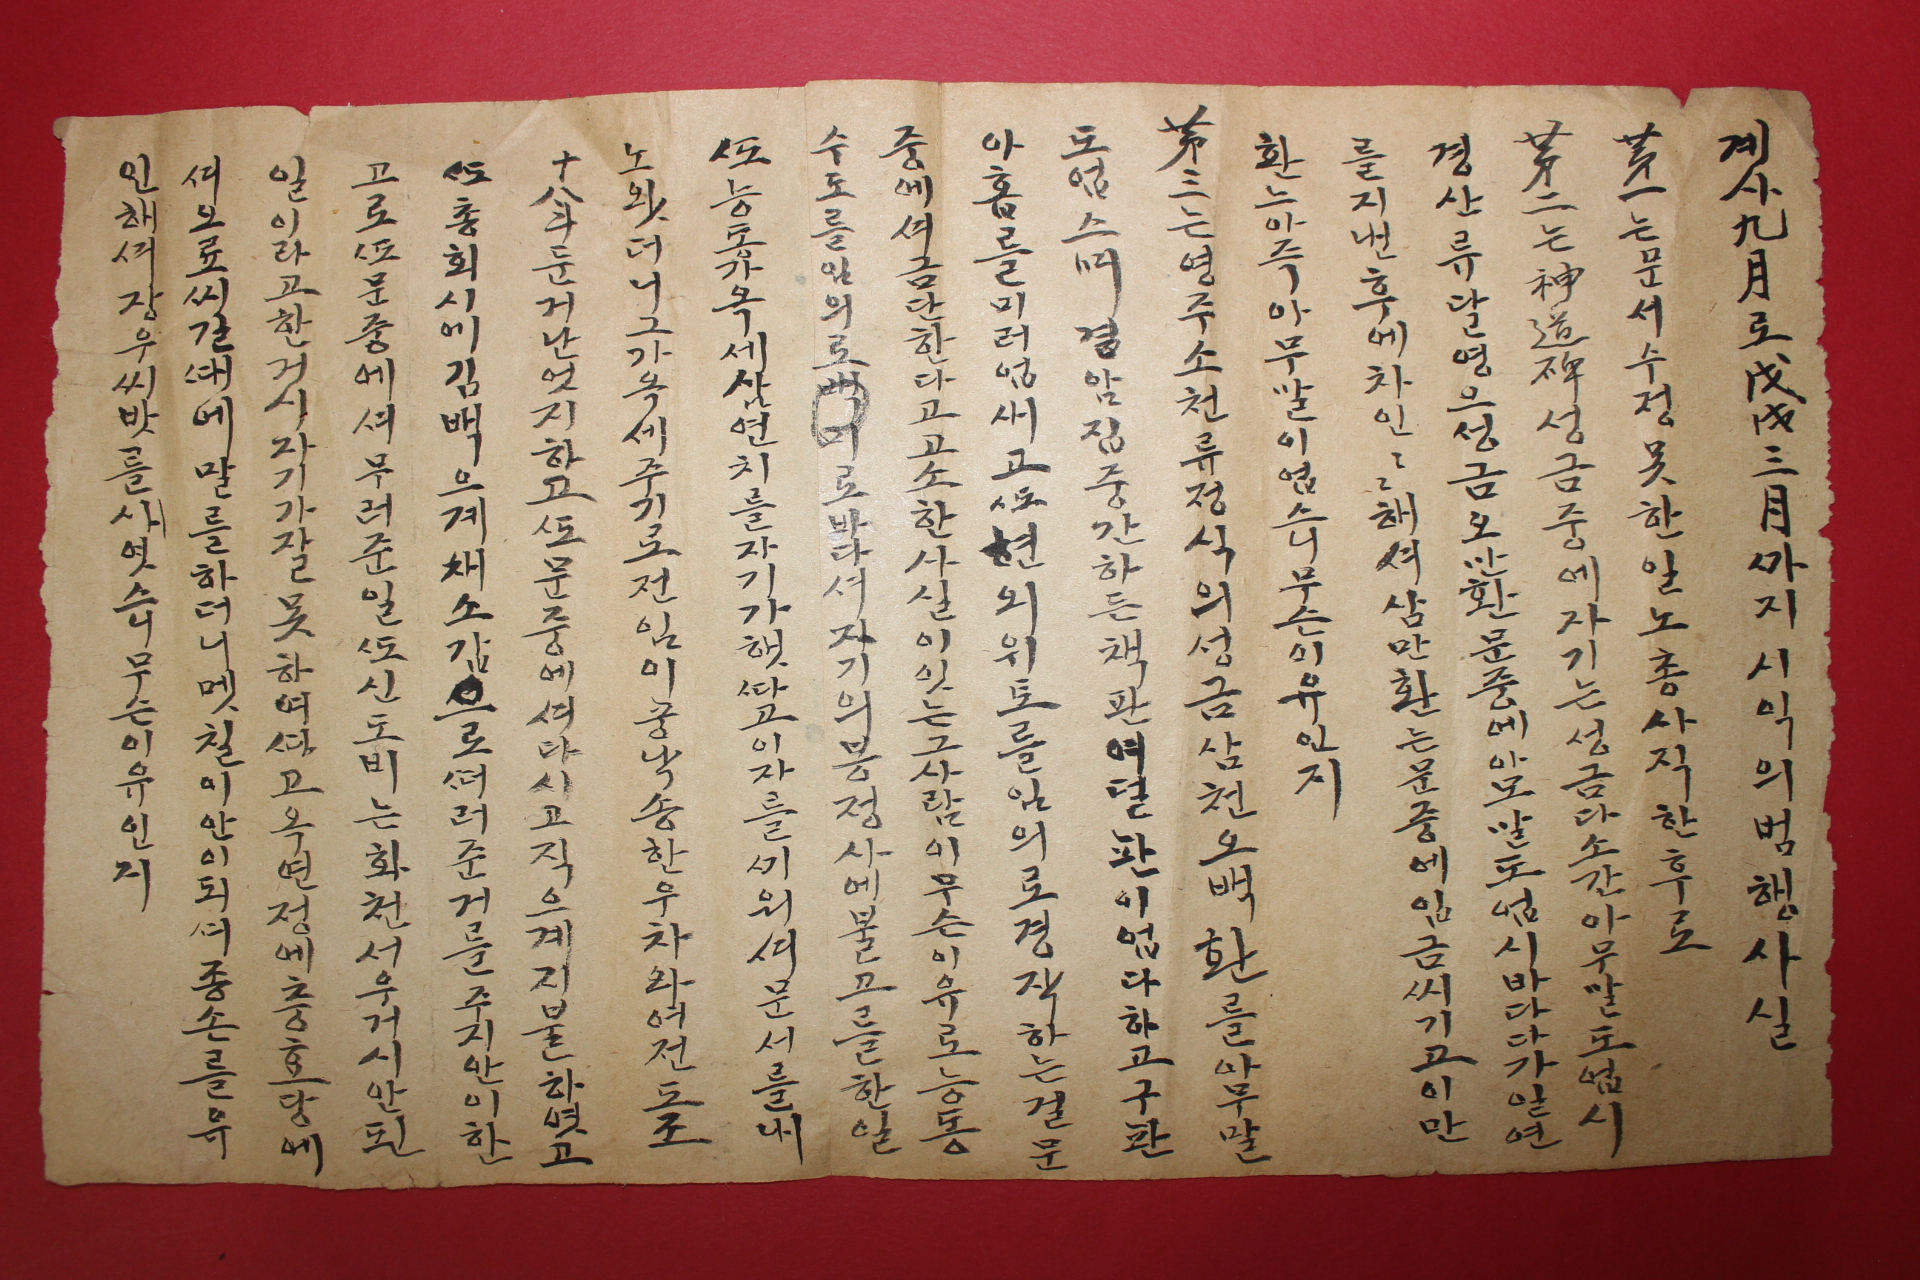 계사九月로戊戌三月ᄭᅡ지 시익의범행사실
第一는문셔수정못한일노총사직한후로
第二는神道碑성금중에자기는성금다소간아무말도업시
경산류달영으성금오만환문중에아모말도업시바다다가일연
를지낸후에차인ㄹㄹ해셔삼만환는문중에임금씨기고이만
환는아주아무말이업스니무슨이유인지
第三는영주소천류정식의성금삼천오백환를아무말
도업스며 겸암집중간하든책판여덜판이업다하고구판
아홉를미러업쌔고ᄯᅩ현외위토를임의로경작하는걸문
중에셔금단한다고고소한사실이잇는그사람이무슨이유로능동
수도를임의로백미로바다셔자기의봉졍사에불고를한일
ᄯᅩ능동가옥세삼연치를자기가햇ᄯᅡ고이자를ᄭᅵ워셔문서를내
노왓더니그가옥세주기로전임이궁낙송한우차와여전도조
十八斗둔거난엇지하고ᄯᅩ문중에셔다시고직으게지불하엿고
ᄯᅩ총회시에김백으게채소갑으로ᄯᅥ러준거를주지안이한
고로ᄯᅩ문중에셔무러준일ᄯᅩ신도비는화천서우거시안된
일이라고한거시자기가잘못하여ᄯᅡ고옥연정에충효당에
셔으로씨갈대에말를하더니멧칠이안이되더종손를유
인해셔장우씨밧를사엿스니무슨이유인지